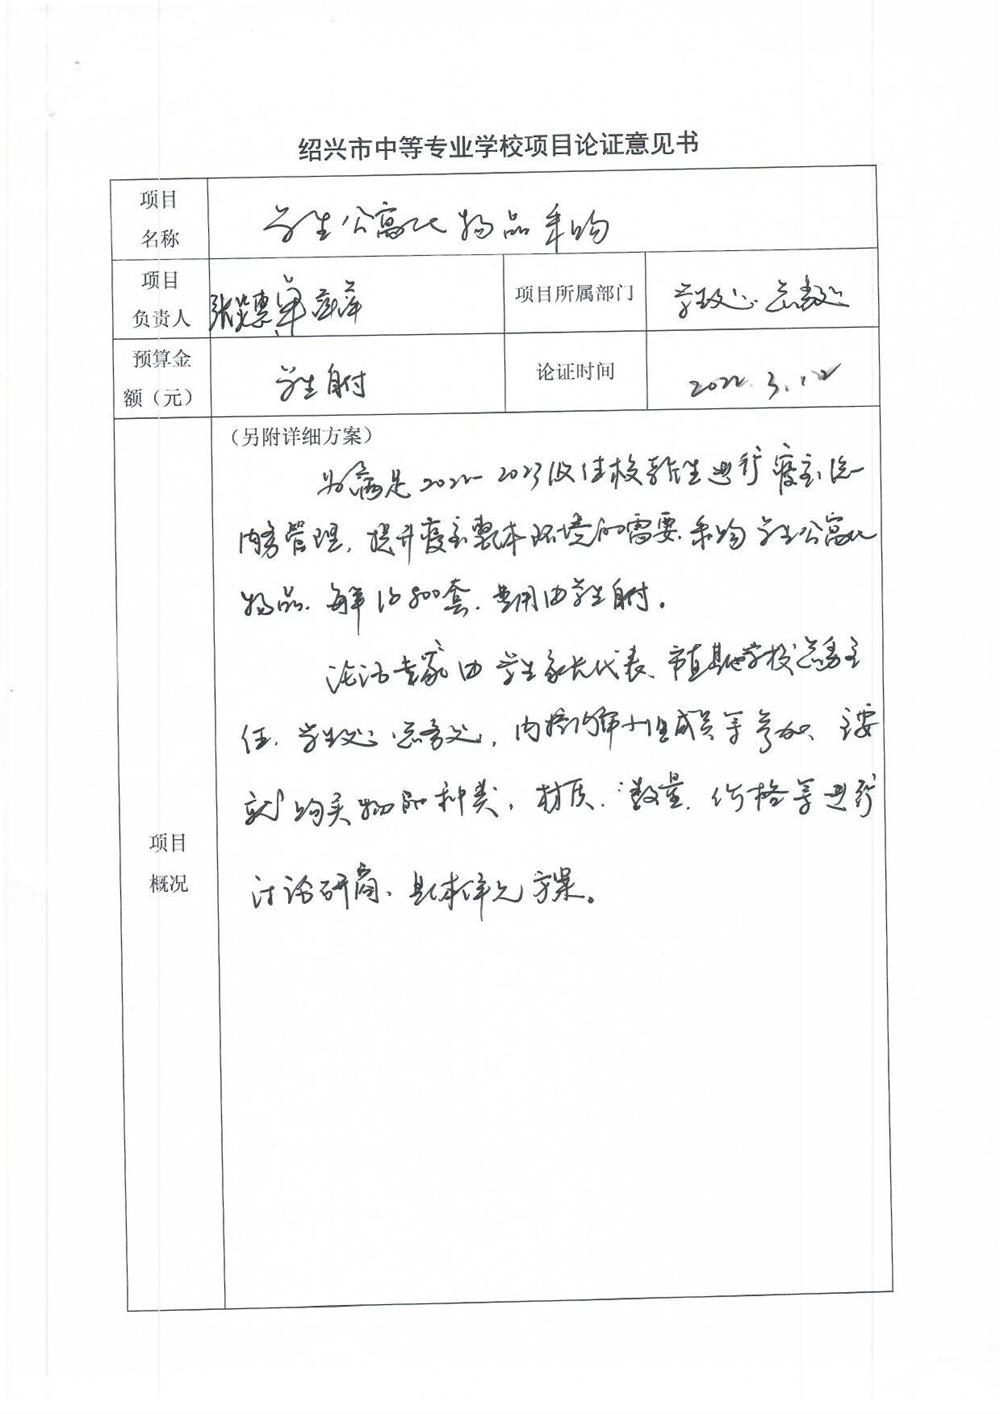 绍兴市中等专业学校项目论证意见书
项目
名称
学生公寓化物品采购
项目
负责人
项目所属部门
学生处 总务处
预算金
额（元）
学生自付
论证时间
2022.3.12
项目
概况
（另附详细方案）
为满足2022-2023级住校新生进行寝室
内务管理，提升寝室整体环境的需要，采购学生公寓化
物品，每年约800套，费用由学生自付。
论证专家由学生家长代表、市直其他学校总务主
任、学生处、总务处，内控内审小组成员等参加，主要
就购买物品种类，材质，数量，价格等进行
讨论研商，具体详见方案。